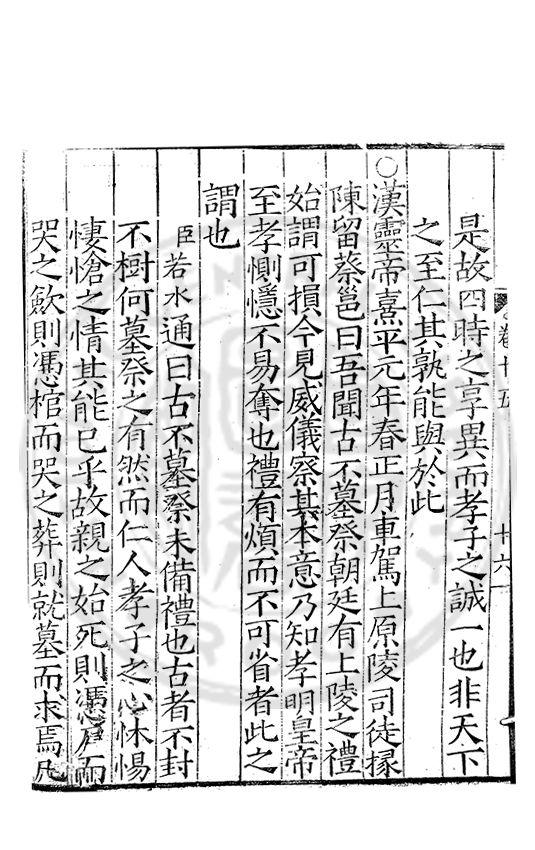 卷十五
十六
是故四時之享異而孝子之誠一也非天下
之至仁其孰能與於此
○漢靈帝熹平元年春正月車駕上原陵司徒掾
陳留蔡邕曰吾聞古不墓祭朝廷有上陵之禮
始謂可損今見威儀察其本意乃知孝明皇帝
至孝惻隱不易奪也禮有煩而不可省者此之
謂也
臣若水通曰古不墓祭未備禮也古者不封
不樹何墓祭之有然而仁人孝子之心怵惕
悽愴之情其能已乎故親之始死則憑尸而
哭之斂則憑棺而哭之葬則就墓而求焉凡